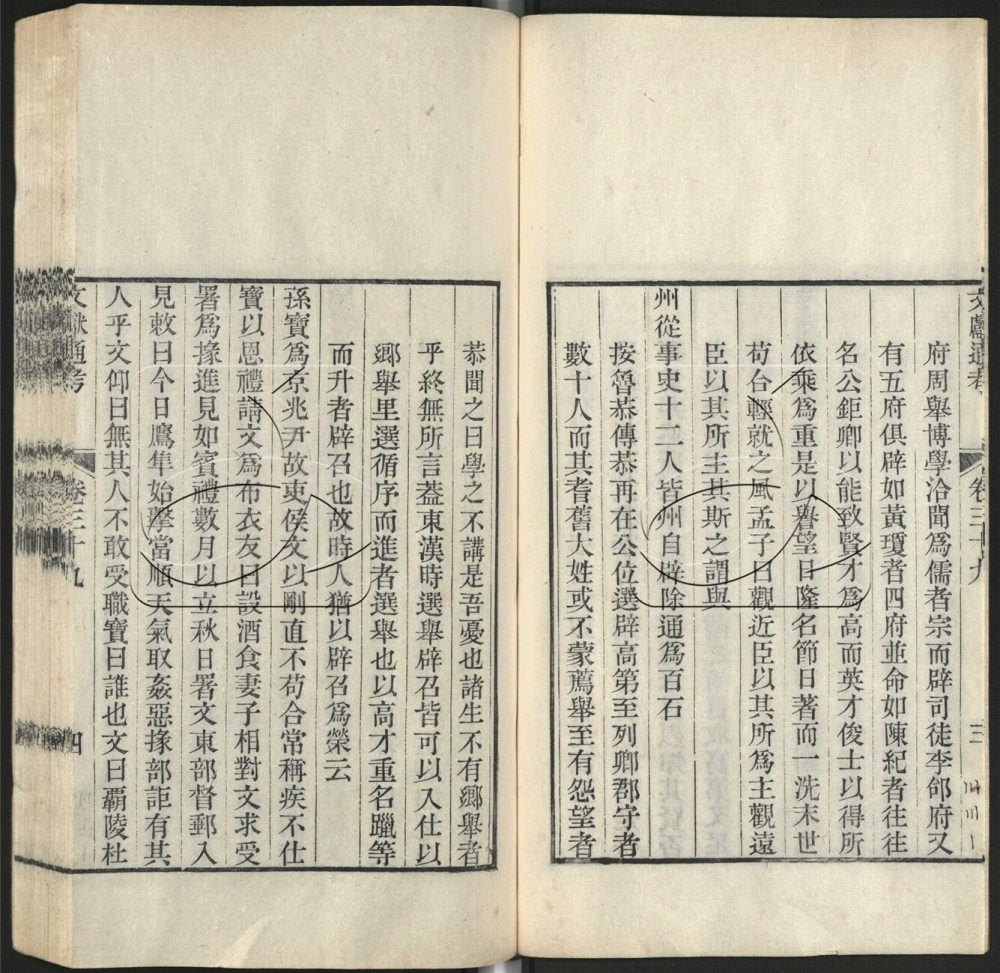 文獻通考 卷三十九 三
府周舉博學洽聞爲儒者宗而辟司徒李郃府又
有五府俱辟如黃瓊者四府並命如陳紀者往往
名公鉅卿以能致賢才爲高而英才俊士以得所
依乘爲重是以譽望日隆名節日著而一洗末世
苟合輕就之風孟子曰觀近臣以其所爲主觀遠
臣以其所主其斯之謂與
州從事史十二人皆州自辟除通爲百石
按魯恭傳恭再在公位選辟高第至列卿郡守者
數十人而其耆舊大姓或不蒙薦舉至有怨望者
恭聞之曰學之不講是吾憂也諸生不有鄉舉者
乎終無所言蓋東漢時選舉辟召皆可以入仕以
鄉舉里選循序而進者選舉也以高才重名躐等
而升者辟召也故時人猶以辟召爲榮云
孫寶爲京兆尹故吏侯文以剛直不苟合常稱疾不仕
寶以恩禮請文爲布衣友日設酒食妻子相對文求受
署爲掾進見如賓禮數月以立秋日署文東部督郵入
見敕曰今日鷹隼始擊當順天氣取姦惡掾部詎有其
人乎文仰曰無其人不敢受職寶曰誰也文曰霸陵杜
文獻通考 卷三十九 四